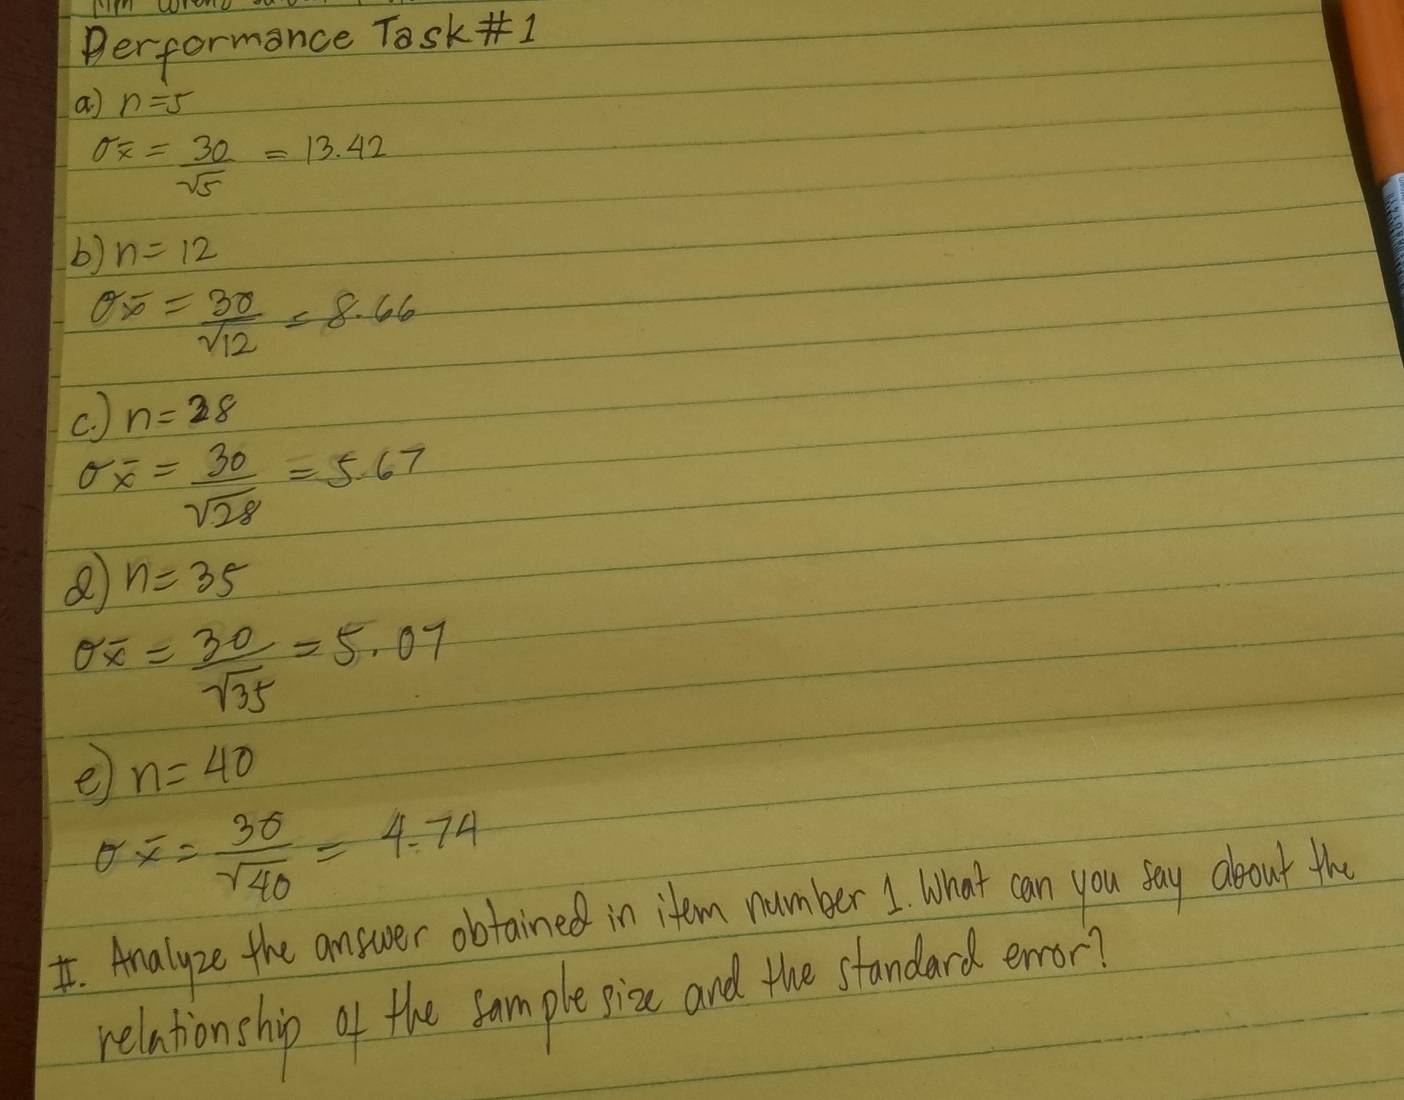 Performance Task #1
a.) n=5
σx̄ = 30/√5 = 13.42
b) n= 12
σx̄ = 30/√12 = 8.66
c.) n= 28
σx̄ = 30/√28 = 5.67
d) n= 35
σx̄ = 30/√35 = 5.07
e) n= 40
σx̄ = 30/√40 = 4.74
II. Analyze the answer obtained in item number 1. What can you say about the
relationship of the sample size and the standard error?